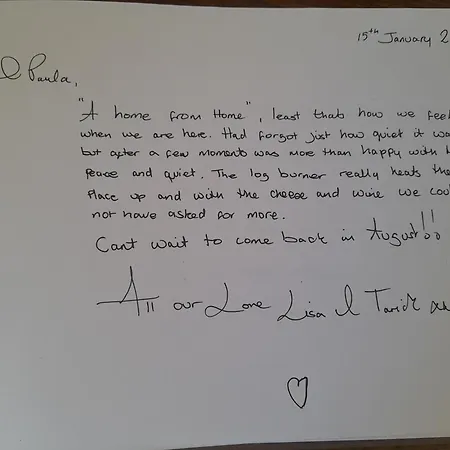 15th January 2
& Paula,
"A home from Home", least thats how we feel
when we are here. Had forgot just how quiet it wa
but after a few moments was more than happy with
peace and quiet. The log burner really heats the
place up and with the cheese and wine we cou
not have asked for more.
Cant wait to come back in August!!
All our Love Lisa & Tarick